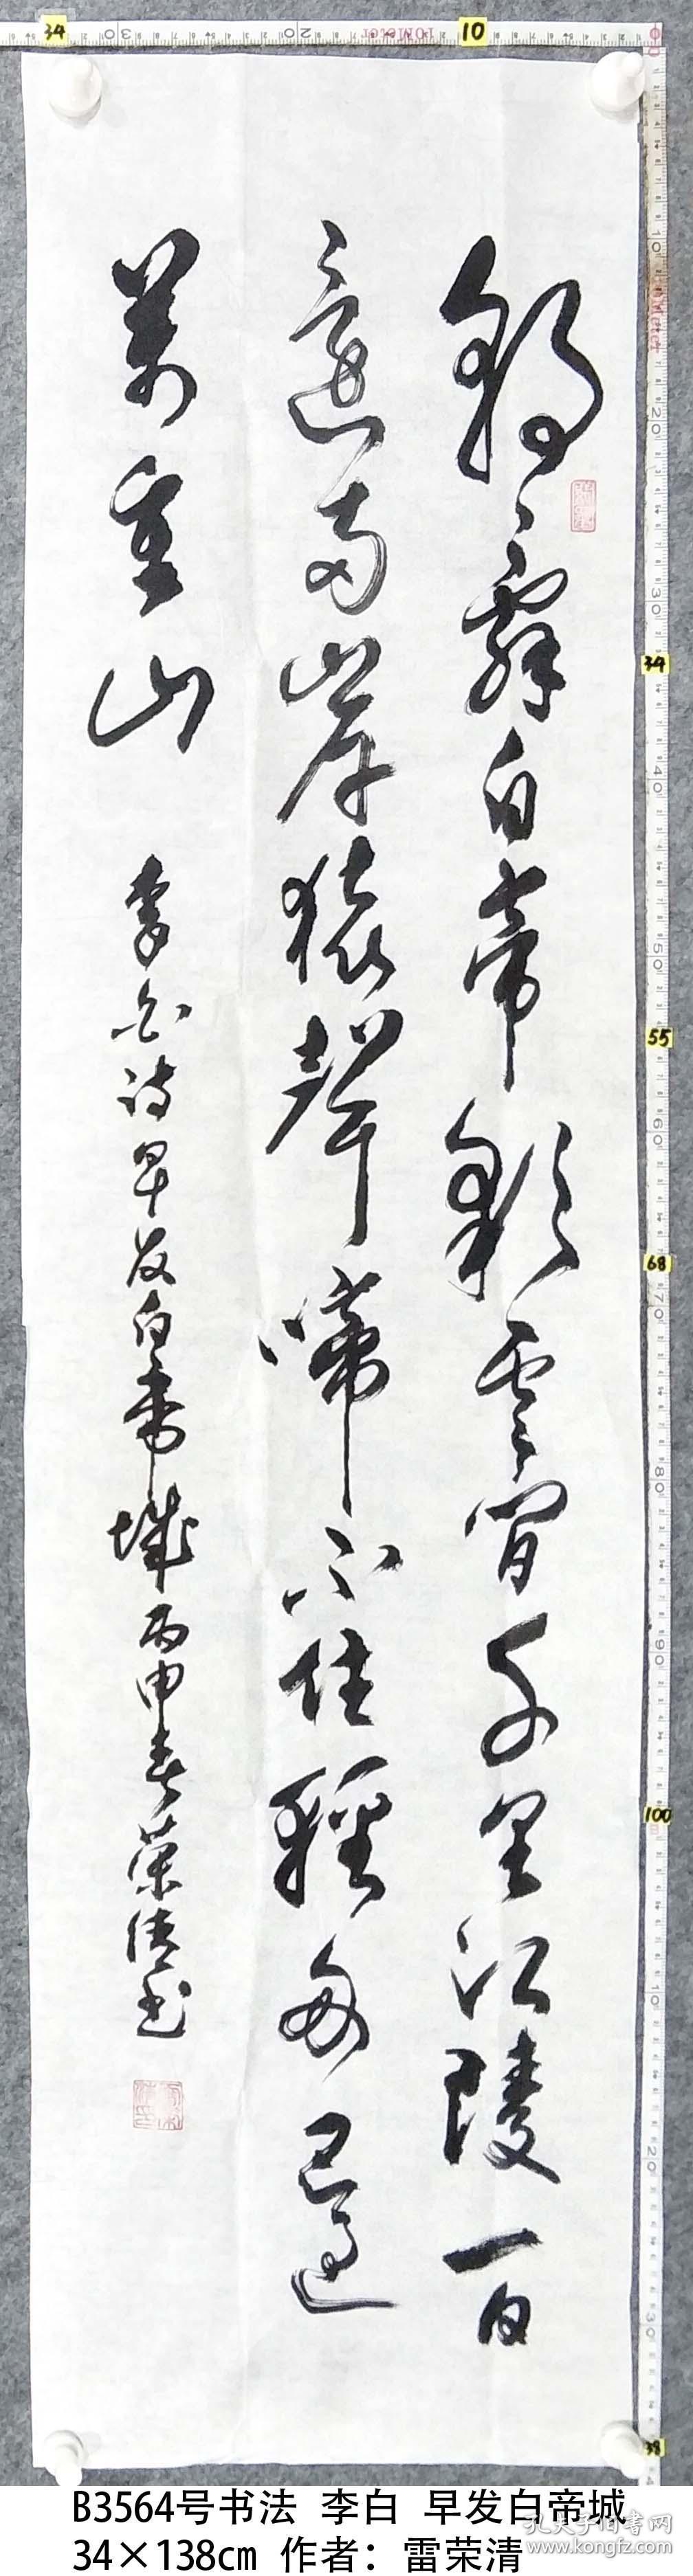 朝辞白帝彩雲間千里江陵一日
還両岸猿聲啼不住輕舟已過
萬重山
李白诗早发白帝城丙申春荣清书
34
30
20
10
55
68
100
38
B3564号书法 李白 早发白帝城
34×138cm 作者：雷荣清
孔夫子旧书网
www.kongfz.com